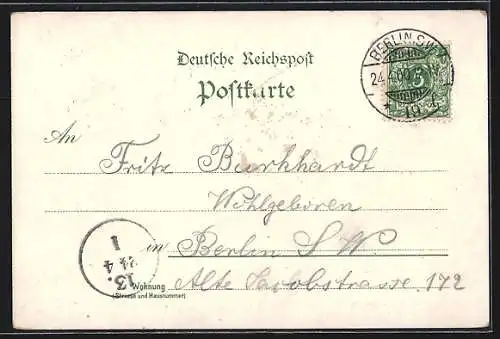 Deutsche Reichspost
Postkarte
BERLIN S.W.
24.4.00
5
An
Fritz Burkhardt
Wohlgeboren
in Berlin S W.
Wohnung
(Strasse und Hausnummer)
Alte Jacobstrasse 172
13.
24 4
1